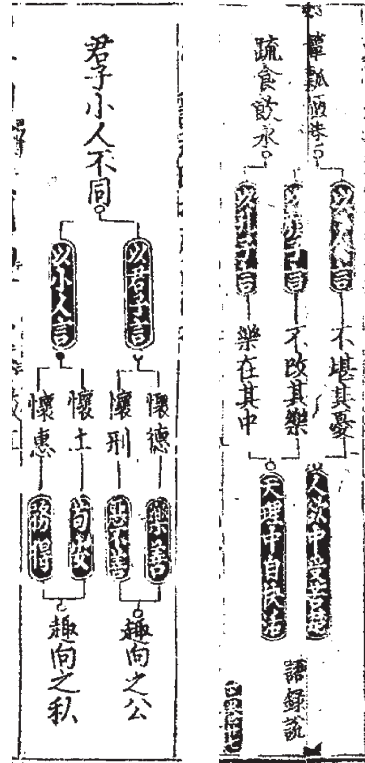 簞瓢陋巷
疏食飲水
以眾人言
以顏子言
以孔子言
不堪其憂
不改其樂
樂在其中
人欲中受苦楚
天理中自快活
語錄說
君子小人不同
以君子言
以小人言
懷德
懷刑
懷土
懷惠
樂善
惡不善
苟安
務得
趣向之公
趣向之私